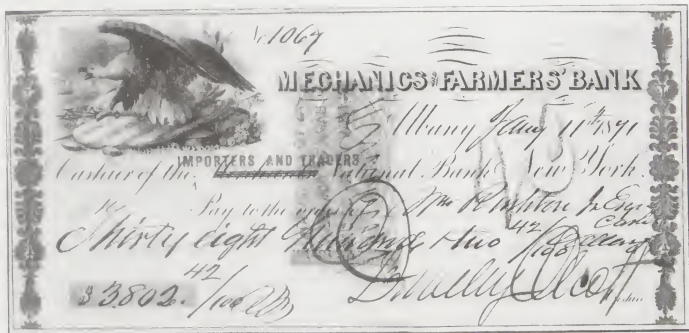 No. 1067
MECHANICS & FARMERS' BANK
Albany Jany 11th 1871
IMPORTERS AND TRADERS
Cashier of the National Bank New York.
Pay to the order of Wm Jr Esqr
Cash
Thirty eight Hundred two 42/100 Dollars
$3,802. 42/100
Dudley Olcott